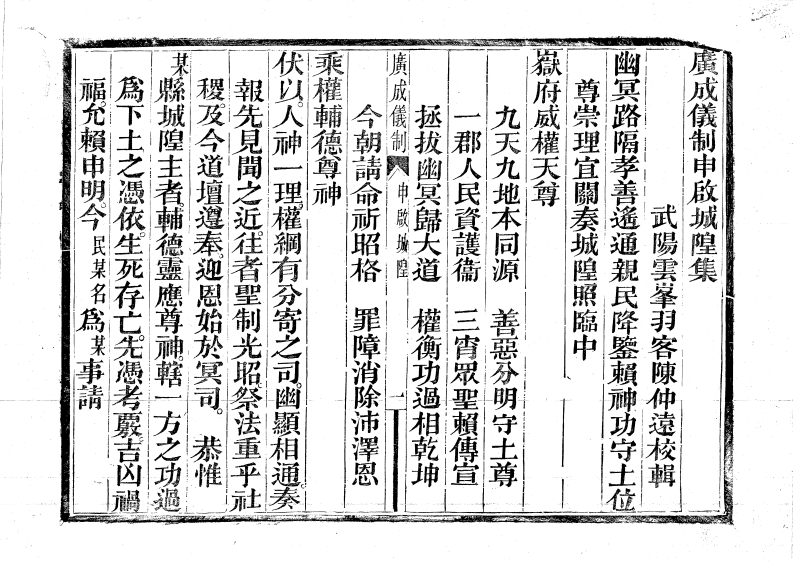 廣成儀制申啟城隍集
武陽雲峯羽客陳仲遠校輯
幽冥路隔孝善遙通親民降鑒賴神功守土位
尊崇理宜關奏城隍照臨中
嶽府威權天尊
九天九地本同源　善惡分明守土尊
一郡人民資護衞　三宵眾聖賴傳宣
拯拔幽冥歸大道　權衡功過相乾坤
今朝請命祈昭格　罪障消除沛澤恩
廣成儀制　申啟城隍　一
乘權輔德尊神
伏以。人神一理。權綱有分寄之司。幽顯相通。奏
報先見聞之近。往者聖制光昭。祭法重乎社
稷。及今道壇遵奉。迎恩始於冥司。　恭惟
某縣城隍主者。輔德靈應尊神。轄一方之功過。
爲下土之憑依。生死存亡。先憑考覈。吉凶禍
福。允賴申明。今民某名爲某事請